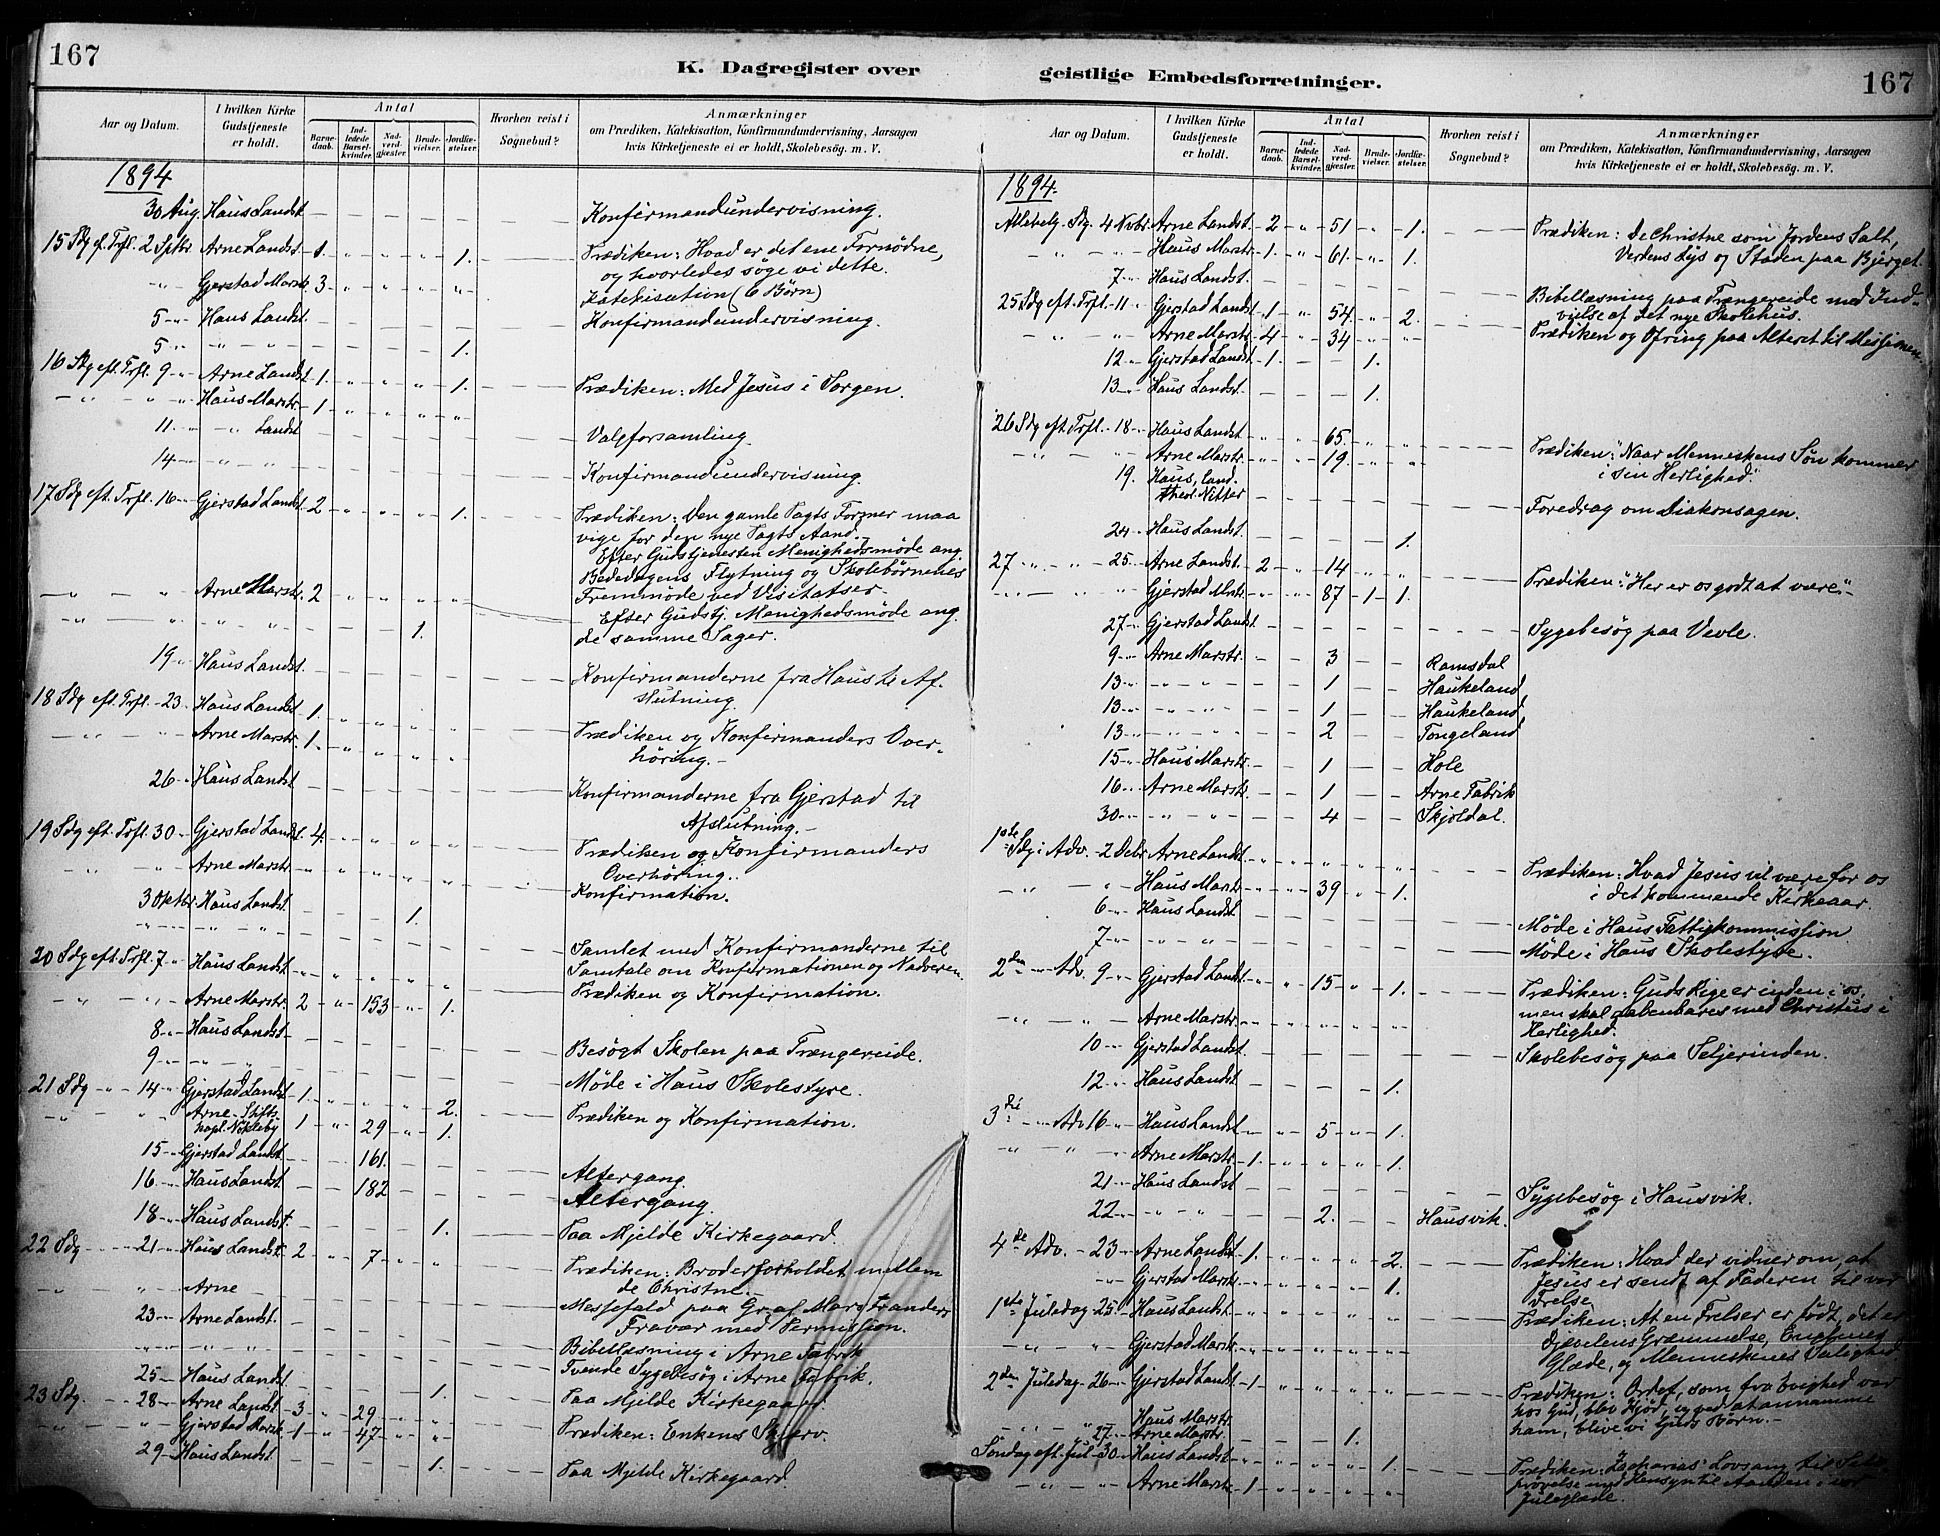 167
K. Dagregister over
Aar og Datum.
I hvilken Kirke Gudstjeneste er holdt.
Antal
Barne-daab.
Ind-ledede Barsel-kvinder.
Nad-verd-gjæster.
Brude-vielser.
Jordfæ-stelser.
Hvorhen reist i Sognebud?
Anmærkninger
om Prædiken, Katekisation, Konfirmandundervisning, Aarsagen
hvis Kirketjeneste ei er holdt, Skolebesøg. m. V.
1894
30 Aug. Haus Landst. – – – – – – Konfirmandundervisning.
15 Sdg ef. Trfl. 2 Sptbr. Arne Landst. 1. " " " 1. Prædiken: Hvad er det ene Fornødne,
og hvorledes søge vi dette.
" Gjerstad Marstr. 3 " " " " Katekisation (6 Børn)
5 " Haus Landst. – – – – – Konfirmandundervisning.
5 " " " – – – – 1.
16 Sdg eft. Trfl. 9 " Arne Landst. 1. " " " 1. Prædiken: Med Jesus i Sorgen.
– " – " " Haus Marstr. 1 " " " "
11. " " Landst – – – – – Valgforsamling.
14 – " – " – – – – – Konfirmandundervisning.
17 Sdg eft. Trfl. 16 " Gjerstad Landst. 2 " " " 1. Prædiken: Den gamle Pagts Former maa
vige for den nye Pagts Aand.
Efter Gudstjenesten Menighedsmøde ang.
Bededagens Flytning og Skolebørnenes
– " " Arne Marstr. 2 " " " " Fremmøde ved Visitatser.
– " – " " " – – – 1. Efter Gudstj. Menighedsmøde ang.
de samme Sager.
19 " Haus Landst. – – – – – Konfirmanderne fra Haus til Af-
slutning.
18 Sdg eft. Trfl. 23 " Haus Landst. 1. " " " "
– " – " Arne Marstr. 1. " " " " Prædiken og Konfirmanders Over-
høring.
26 " Haus Landst – – – – – Konfirmanderne fra Gjerstad til
Afslutning.
19 Sdg eft. Trfl. 30 " Gjerstad Landst. 4. " " " " Prædiken og Konfirmanders
– " – " Arne Marstr. " " " " " Overhøring.
3 Oktbr. Haus Landst. – – – 1. Konfirmation.
" " " " – – – – – Samlet med Konfirmanderne til
20 Sdg eft. Trfl. 7 " Haus Landst. " " " " " Samtale om Konfirmationen og Nadveren.
– " – " Arne Marstr. 2 " 153 " 1. Prædiken og Konfirmation.
8 " Haus Landst. – – – – –
9 " " " – – – – – Besøgt Skolen paa Trængereide.
21 Sdg " " 14 " Gjerstad Landst. 1. " " " 2. Møde i Haus Skolestyre.
– " – " Arne – Stifts-
kapl. Nøkleby 1 " 29 " 1. Prædiken og Konfirmation.
15 Gjerstad Landst. – – 161. – –
16 " Haus Landst. – – 182 – – Altergang.
Altergang.
18 " Haus Landst. – – – – 1. Paa Mjelde Kirkegaard.
22 Sdg – – 21 " Haus Landst. 2 " 7 " " Prædiken: Broderforholdet mellem
de Christne.
– " – " Arne – – – – – Messefald paa Gr. af Marstranders
23 – Arne Landst. – – – – – Fravær med Permission.
" " " " – – – – – Bibellæsning i Arne Fabrik
Tvende Sygebesøg i Arne Fabrik.
25 " Haus Landst. – – – – 1. Paa Mjelde Kirkegaard
23 Sdg – – 28 – Arne Landst. 3 – 29 " "
– " – " Gjerstad Marstr. 1 " 47 " " Prædiken: Enkens Skjerv.
29 – Haus Landst. – – – – 1. Paa Mjelde Kirkegaard.
geistlige Embedsforretninger.
167
Aar og Datum.
I hvilken Kirke Gudstjeneste er holdt.
Antal
Barne-daab.
Ind-ledede Barsel-kvinder.
Nad-verd-gjæster.
Brude-vielser.
Jordfæ-stelser.
Hvorhen reist i Sognebud?
Anmærkninger
om Prædiken, Katekisation, Konfirmandundervisning, Aarsagen
hvis Kirketjeneste ei er holdt, Skolebesøg. m. V.
1894.
Allehelg. Sdg. 4 Nvbr. Arne Landst. 2 " 51 " 1. Prædiken: De Christne som Jordens Salt,
– " – " Haus Marstr. 1. " 61. " 1. Verdens Lys og Staden paa Bjerget.
7 " Haus Landst. – – – – – Bibellæsning paa Trængereide med Ind-
vielse af det nye Skolehus.
25 Sdg eft. Trfl. 11 " Gjerstad Landst. 1 " 54 " 2. Prædiken og Ofring paa Alteret til Missionen.
– " – " Arne Marstr. 4 " 34 " "
12 " Gjerstad Landst. 1. – – 1. –
13 " Haus Landst. – – – 1.
26 Sdg eft. Trfl. 18 " Haus Landst. " " 65. " " Prædiken: "Naar Menneskens Søn kommer
" – " Arne Marstr. " " 19. " " i sin Herlighed."
19. Haus, Cand.
theol. Nitter – – – – – Foredrag om Diakonsagen.
24 " Haus Landst. – – – – 1.
27 " " " 25. Arne Landst. 2 " 14 " " Prædiken: "Her er os godt at være."
– " – " Gjerstad Mrstr. " " 87 – 1 – 1.
27 " Gjerstad Landst. – – – – – Sygebesøg paa Vevle.
9 " Arne Marstr. – – 3 – – Ramsdal
13 " – " " – – 1 – – Haukeland,
13 " – " " – – 1 – – Haukeland
13 " – " " – – 2 – – Tongeland
15 " Haus Marstr. – – 1 – – Hole
16 " Arne Marstr. – – 1 – – Arne Fabrik
30 " " – " – – 4 – – Skjoldal.
1ste Sdg i Adv. – 2 Debr. Arne Landst. " " " " " Prædiken: Hvad Jesus vil være for os
– " – " Haus Marstr. " " 39 " 1. i det kommende Kirkeaar.
6 " Haus Landst. – – – – – Møde i Haus Fattigkommission
7 " " " – – – – – Møde i Haus Skolestyre.
2den " Adv. 9 " Gjerstad Landst. " " 15 " 1. Prædiken: Guds Rige er inden i os,
– " – " Arne Marstr. " " " " " men skal aabenbares med Christus i
Herlighed.
10 " Gjerstad Landst. – – – – – Skolebesøg paa Seljerinden.
12 " Haus Landst. – – – – 1.
3die " Adv. 16 " Haus Landst. " " 5 " 1.
" – " Arne Marstr. 1. " " " 1.
21 " Haus Landst – – – – – Sygebesøg i Hausvik.
22 " " " – – 2. – – Hausvik.
4de Adv. – 23 – Arne Landst. 1. " " " 2. Prædiken: Hvad der vidner om, at
" Gjerstad Marstr. " " " " 1. Jesus er sendt af Faderen til vor
Frelse.
1ste Juledag 25. Haus Landst. " " " " " Prædiken: At en Frelser er født, det er
– " – " Gjerstad Marstr. " " " " " Djævelens Græmmelse, Englenes
Glæde, og Menneskenes Salighed.
2den Juledag 26. Gjerstad Landst. 1 " " " " Prædiken: Ordet, som fra Evighed var
hos Gud, blev Kjød, og ved at annamme
" Haus Marstr. ham, blive vi Guds Børn.
27. Arne Marstr. – – – 1.
Søndag eft. Jul 30. Haus Landst. " " " " 1. Prædiken: Zacharias' Lovsang til
prøvelse med Hensyn til Aanden i vor
– " – " Arne Marstr. 1 " " " " Juleglæde.